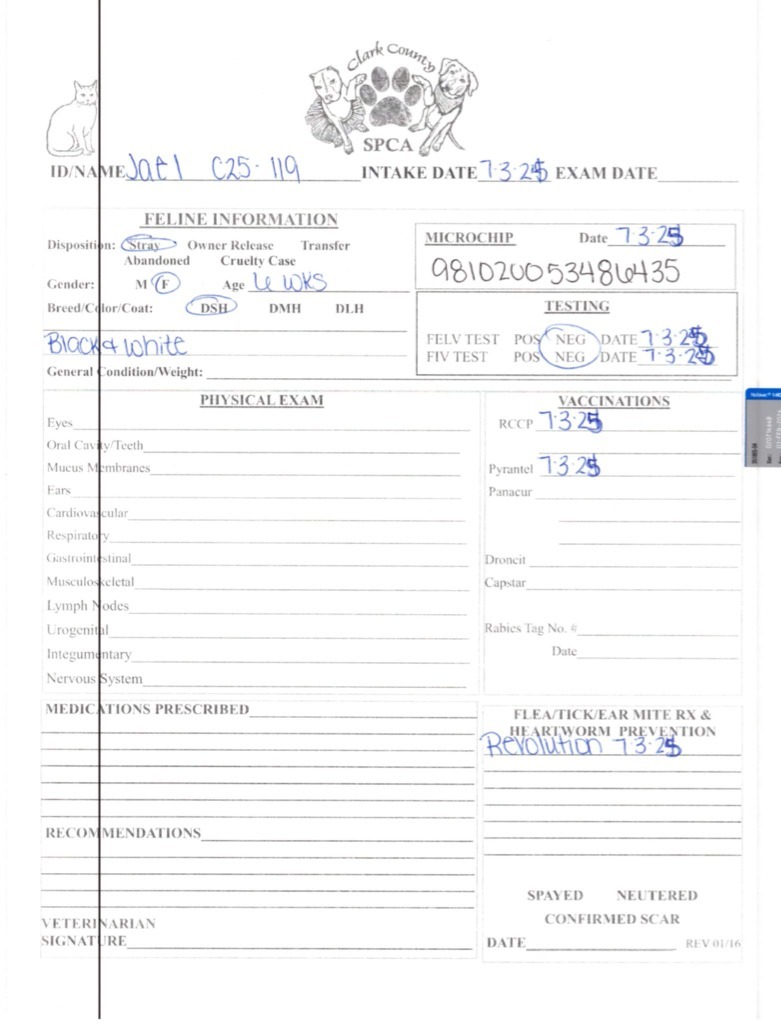 Clark County
SPCA
ID/NAME Jael C25-119 INTAKE DATE 7-3-25 EXAM DATE
FELINE INFORMATION
Disposition: Stray Owner Release Transfer
Abandoned Cruelty Case
Gender: M F Age 6 WKS
Breed/Color/Coat: DSH DMH DLH
Black & White
General Condition/Weight:
MICROCHIP Date 7-3-25
981020053486435
TESTING
FELV TEST POS NEG DATE 7-3-25
FIV TEST POS NEG DATE 7-3-25
PHYSICAL EXAM
Eyes
Oral Cavity/Teeth
Mucus Membranes
Ears
Cardiovascular
Respiratory
Gastrointestinal
Musculoskeletal
Lymph Nodes
Urogenital
Integumentary
Nervous System
VACCINATIONS
RCCP 7-3-25
Pyrantel 7-3-25
Panacur
Droncit
Capstar
Rabies Tag No. #
Date
MEDICATIONS PRESCRIBED
RECOMMENDATIONS
VETERINARIAN
SIGNATURE
FLEA/TICK/EAR MITE RX &
HEARTWORM PREVENTION
Revolution 7-3-25
SPAYED NEUTERED
CONFIRMED SCAR
DATE REV 01/16